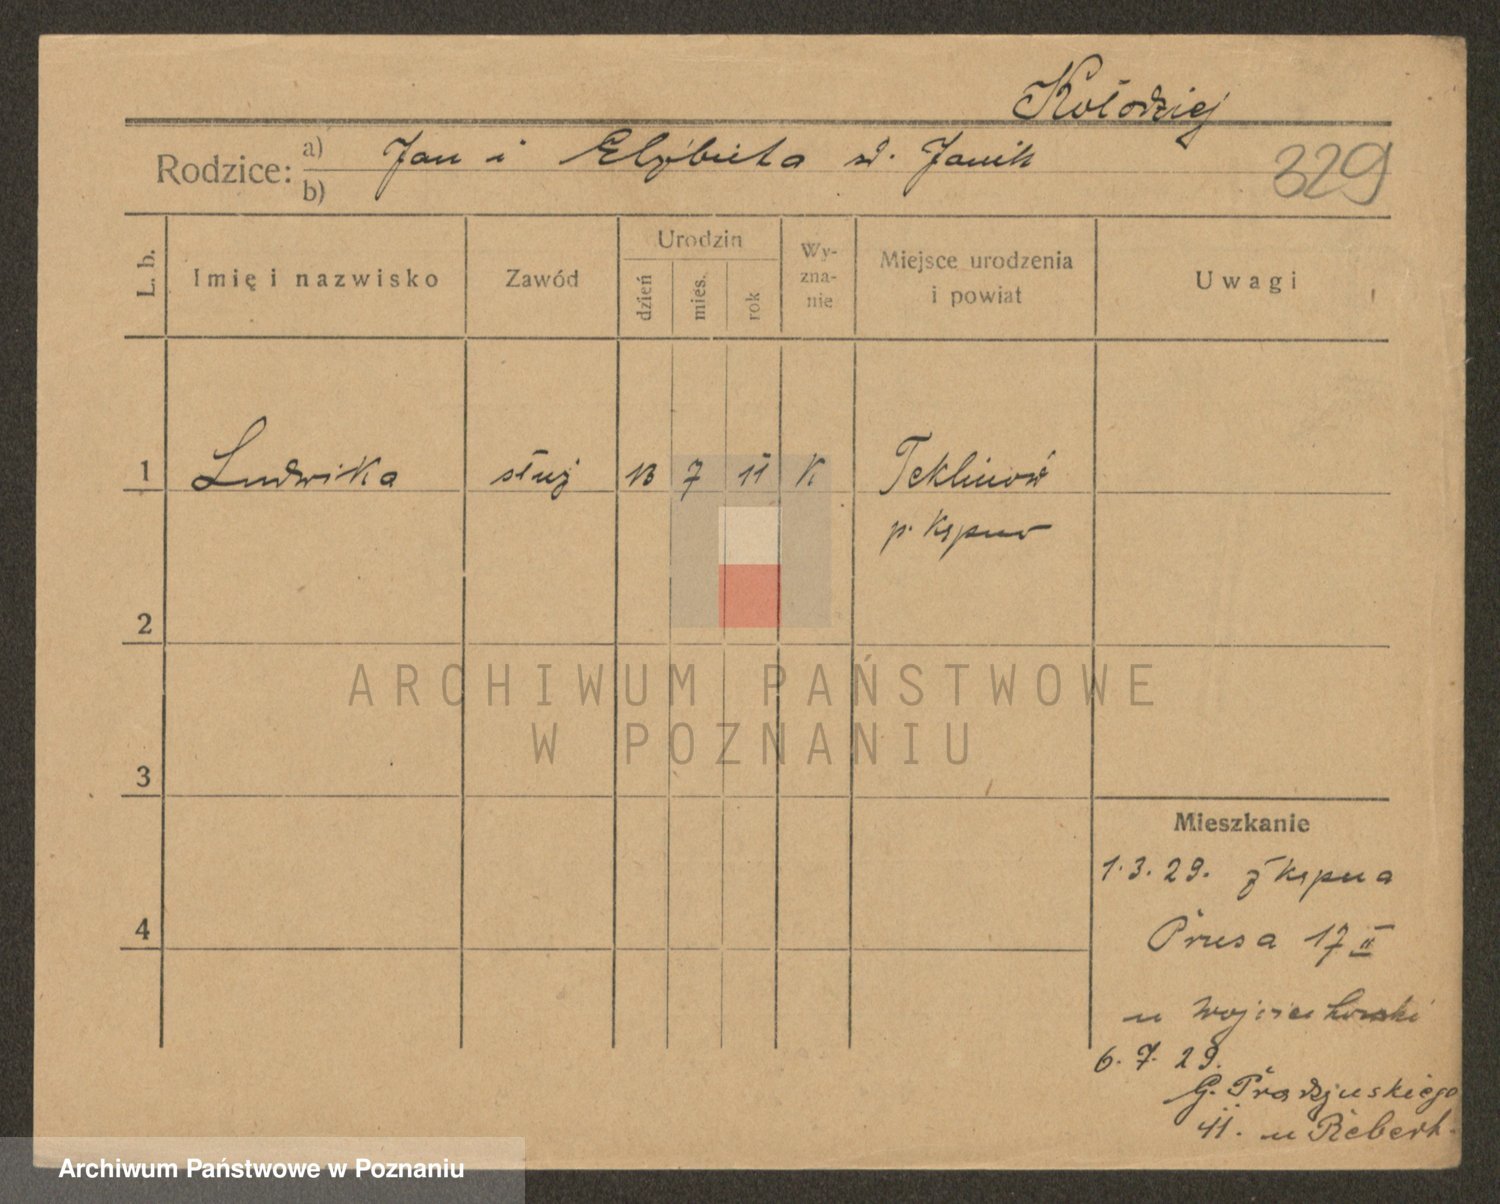 Kołodziej
Rodzice: a) b) Jan i Elżbieta d. Janik
329
L. b.
Imię i nazwisko
Zawód
Urodzin
dzień
mies.
rok
Wy-
zna-
nie
Miejsce urodzenia
i powiat
Uwagi
1 Ludwika służ 13 7 11 K Teklinów
p. Kępno
2
ARCHIWUM PAŃSTWOWE
W POZNANIU
3
Mieszkanie
1.3.29. z Kępna
4
Prusa 17 II
u Wojciechowski
6.7.29.
G. Prądzyńskiego
41. u Rebert.
Archiwum Państwowe w Poznaniu